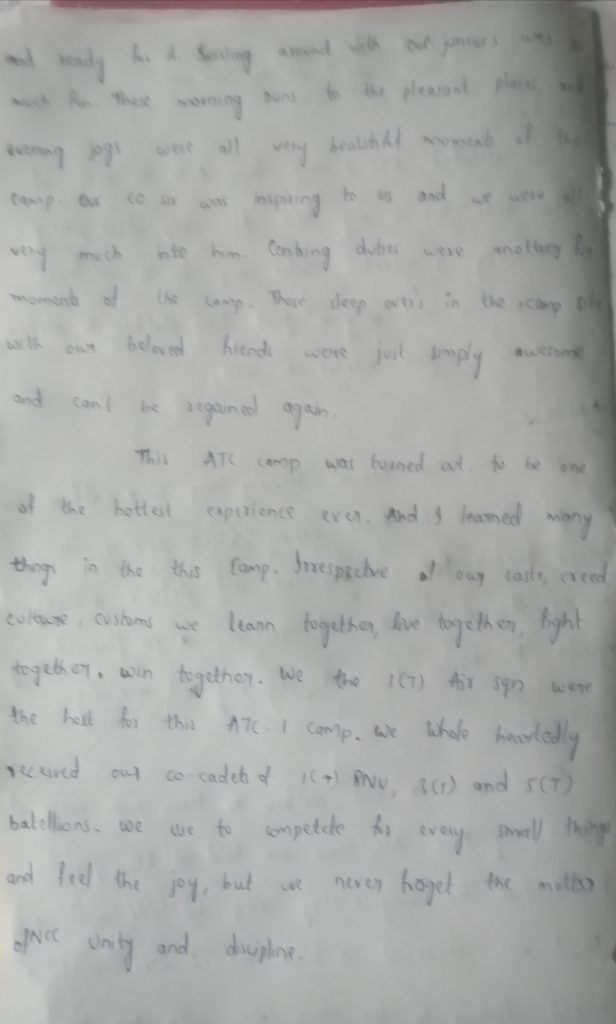 and ready for a twirling around with our juniors was
much fun. Those morning runs to the pleasant places, and
evening jogs were all very beautiful moments of the
camp. Our CO sir was inspiring to us and we were all
very much into him. duties were another fun
moments of the camp. Those sleep over's in the camp site
with our beloved friends were just simply awesome
and can't be regained again.
This ATC camp was turned out to be one
of the hottest experience ever. And I learned many
things in the this Camp. Irrespective of our caste, creed
culture, customs we learn together, live together, fight
together, win together. We the 1(T) Air sqn were
the host for this ATC-1 camp. We whole heartedly
received our co-cadets of 1(T) 3(T) and 5(T)
batellions. We we to competete for every small things
and feel the joy, but we never forget the motto
of NCC Unity and discipline.